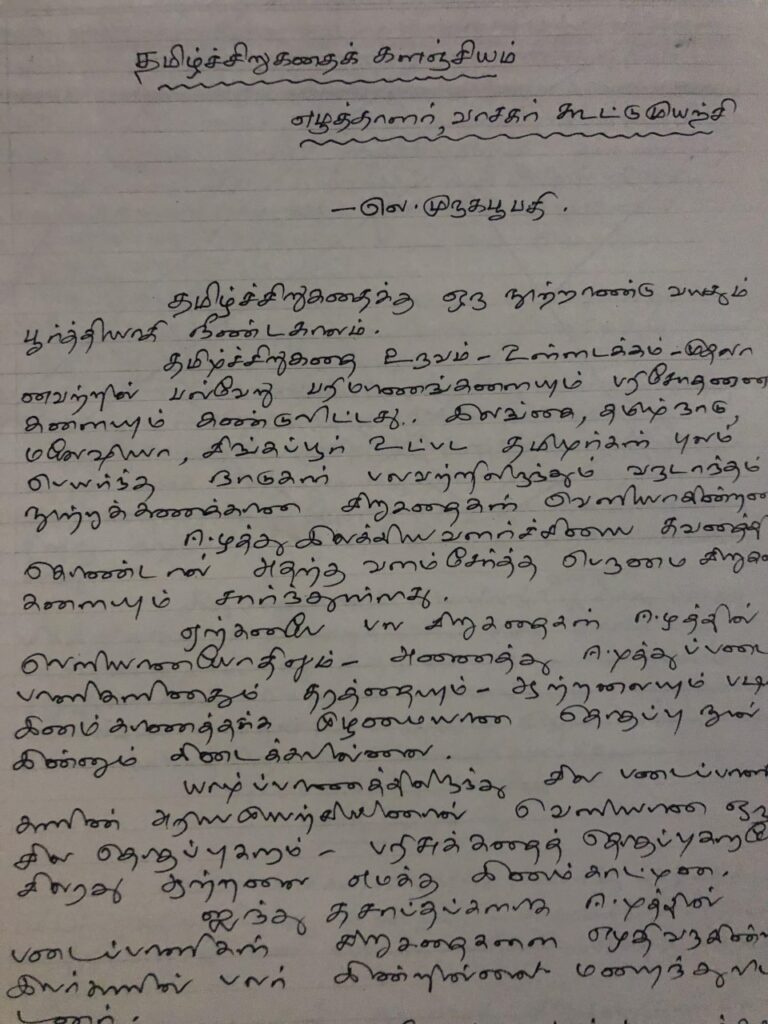 தமிழ்ச்சிறுகதைக் களஞ்சியம்
எழுத்தாளர், வாசகர் கூட்டுமுயற்சி
- லெ. முருகபூபதி.
தமிழ்ச்சிறுகதைக்கு ஒரு நூற்றாண்டு வயதும்
பூர்த்தியாகி நீண்டகாலம்.
தமிழ்ச்சிறுகதை உருவம் - உள்ளடக்கம் - முதலா
னவற்றில் பல்வேறு பரிமாணங்களையும் பரிசோதனை
களையும் கண்டுவிட்டது.. இலங்கை, தமிழ்நாடு,
மலேஷியா, சிங்கப்பூர் உட்பட தமிழர்கள் புலம்
பெயர்ந்த நாடுகள் பலவற்றிலிருந்தும் வருடாந்தம்
நூற்றுக்கணக்கான சிறுகதைகள் வெளியாகின்றன
ஈழத்து இலக்கியவளர்ச்சியை கவனத்தி
கொண்டால் அதற்கு வளம்சேர்த்த பெருமை சிறுக
களையும் சார்ந்துள்ளது.
ஏற்கனவே பல சிறுகதைகள் ஈழத்தில்
வெளியானபோதிலும் - அனைத்து ஈழத்துப்படை
பாளிகளினதும் தரத்தையும் - ஆற்றலையும்
இனம்காணத்தக்க முழுமையான தொகுப்பு நூல்
இன்னும் கிடைக்கவில்லை.
யாழ்ப்பாணத்திலிருந்து சில படைப்பாளி
களின் அரியமுயற்சியினால் வெளியான ஒரு
சில தொகுப்புகளும் - பரிசுக்கதைத் தொகுப்புகளுமே
சிலரது ஆற்றலை எமக்கு இனம்காட்டின.
ஐந்து தசாப்தங்களாக ஈழத்தின்
படைப்பாளிகள் சிறுகதைகளை எழுதிவருகின்
இவர்களில் பலர் இன்றில்லை மறைந்துவி
டனர்.